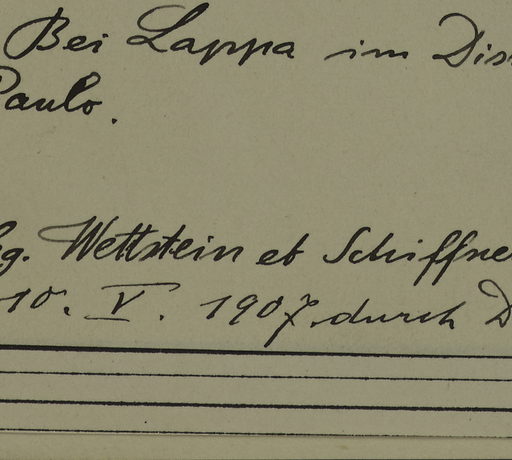 Bei Lappa im Dis
Paulo.
g. Wettstein et Schiffne
10. V. 1907. durch D